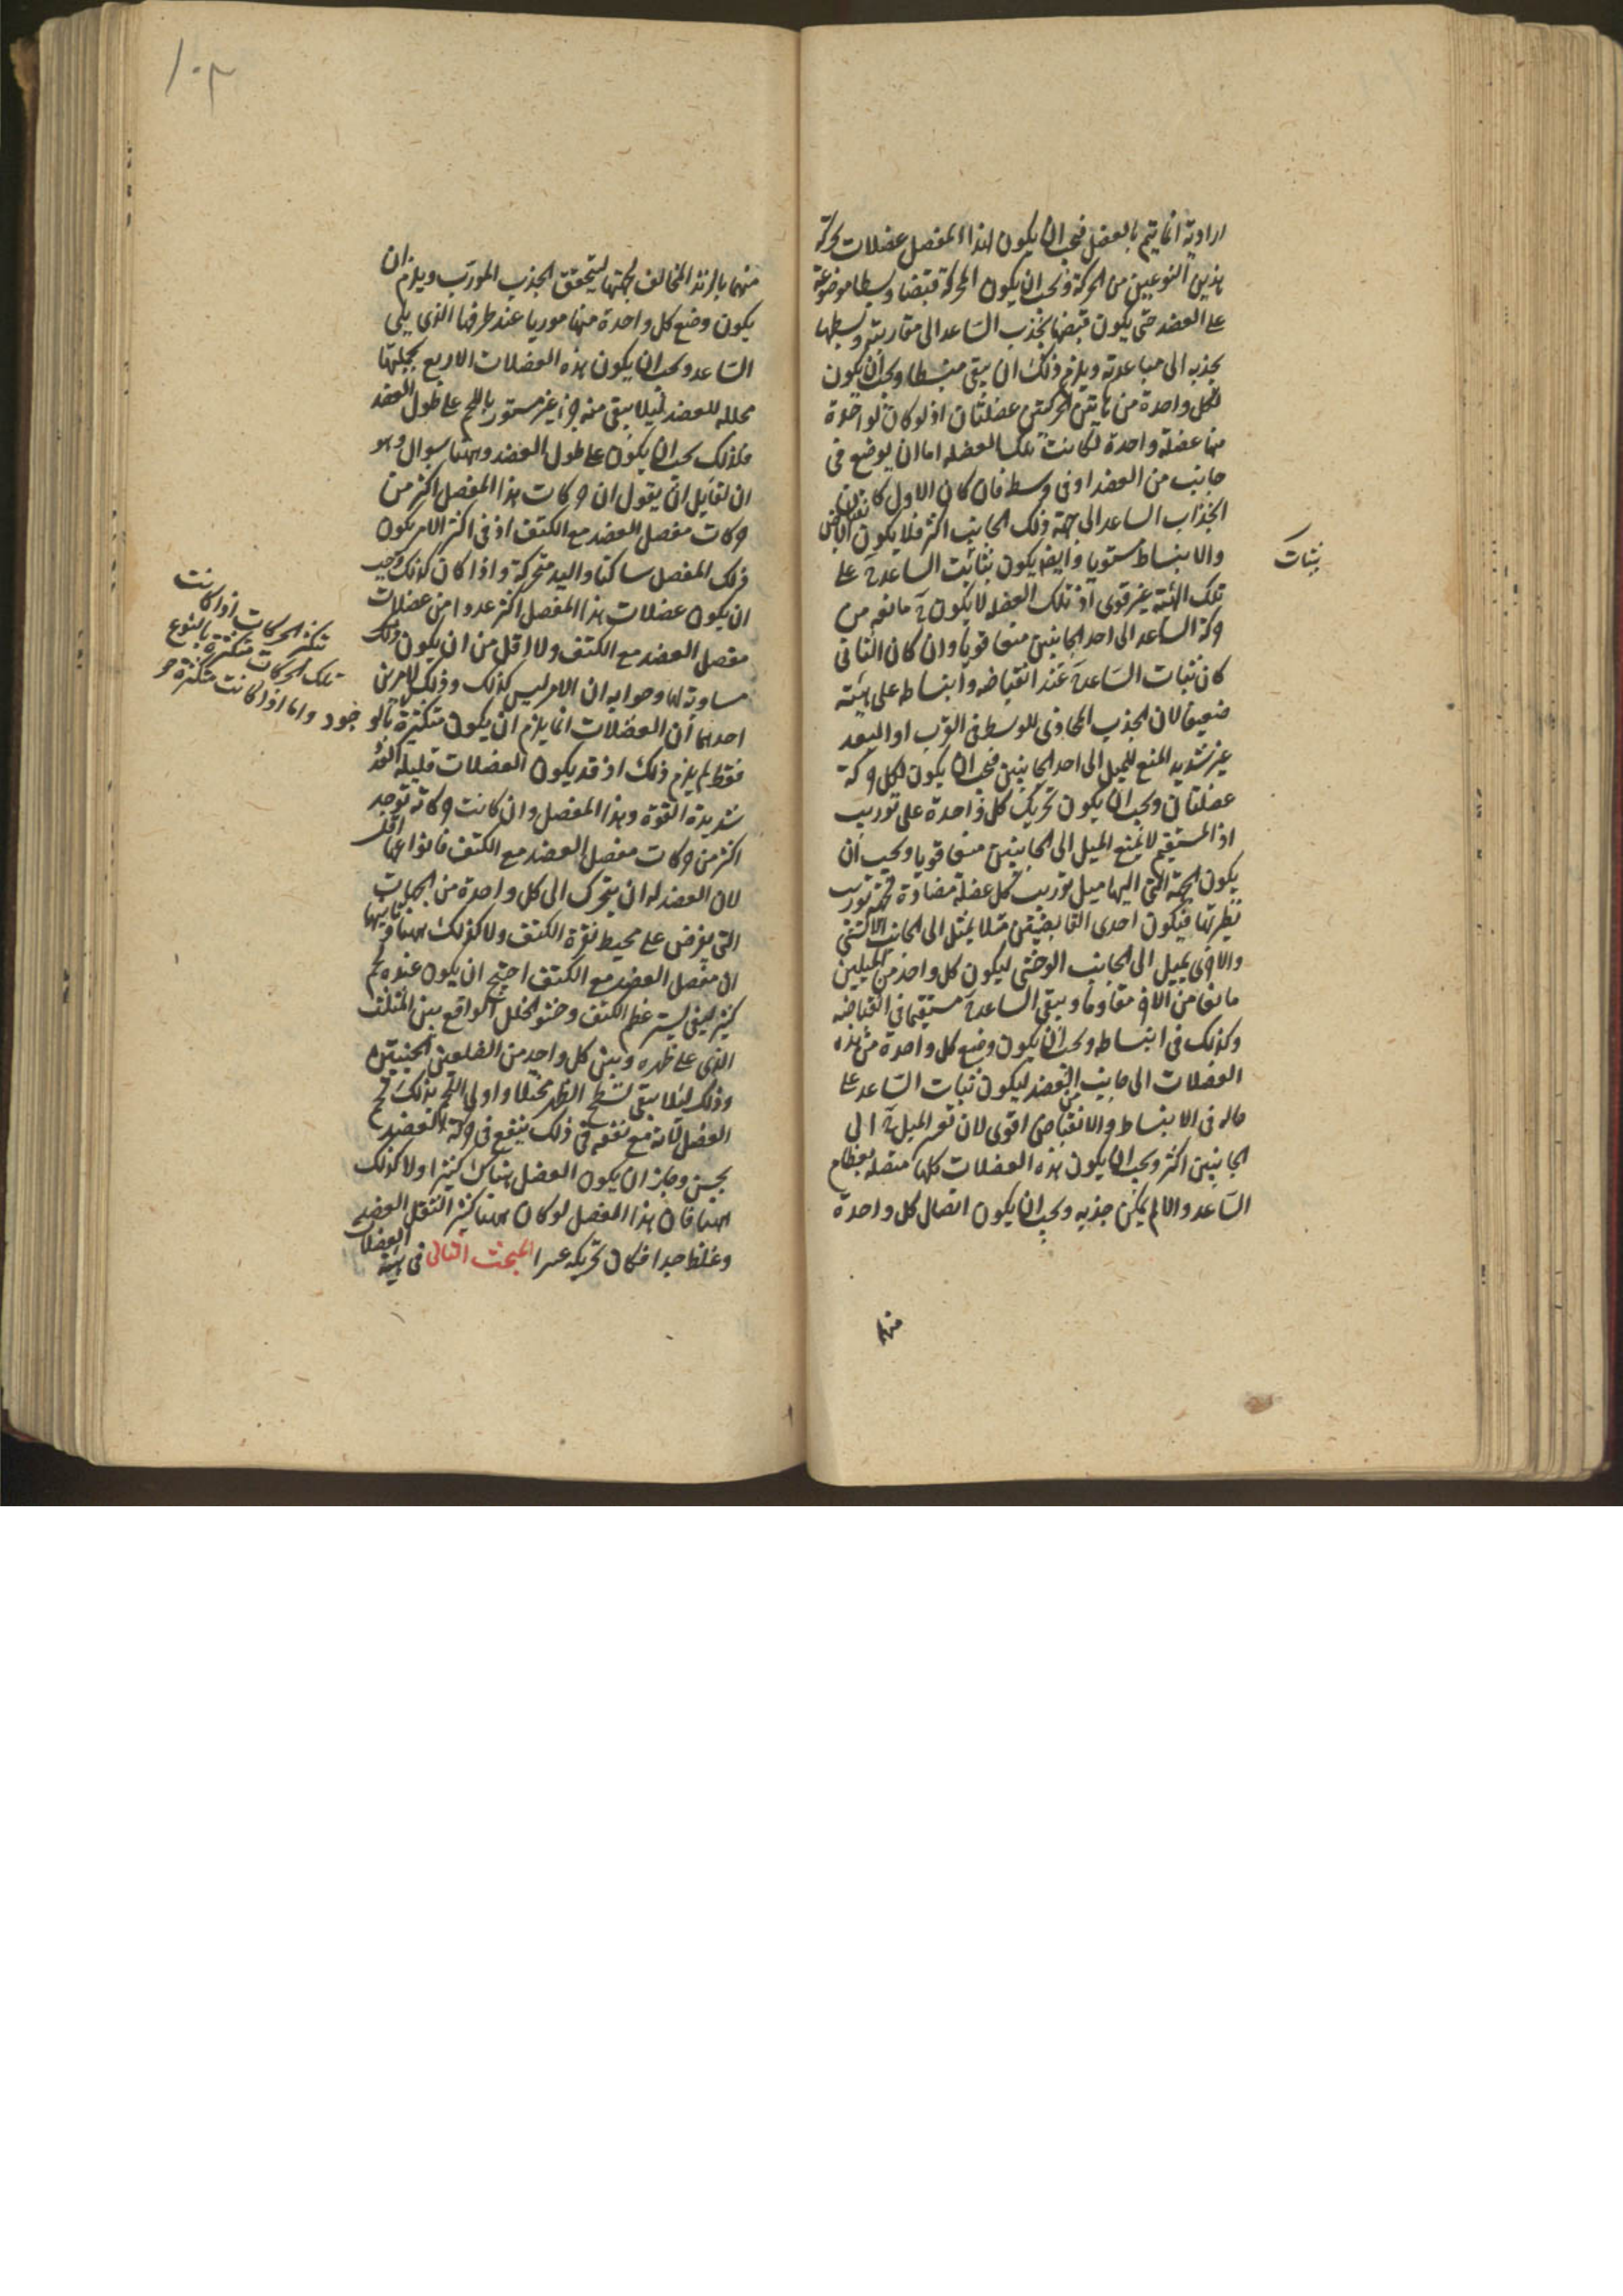 ارادية انما يتم بالعضل فيجب ان يكون لهذا المفصل عضلات لحركة
هذين النوعين من الحركة ويجب ان يكون المحركة قبضا وبسطا موضوعة
على العضد حتى يكون قبضها بجذب الساعد الى مقاربته وبسطها
بجذبه الى مباعدته ويلزم ذلك ان يبقى منبسطا ويجب ان يكون
لكل واحدة من هاتين الحركتين عضلتان اذ لو كان لواحدة
منهما عضلة واحدة لكانت تلك العضله اما ان يوضع فى
جانب من العضد او فى وسط فان كان الاول كان
انجذاب الساعد الى جهة ذلك الجانب اكثر فلا يكون انقباض
والانبساط مستويا وايضا يكون ثبات الساعد ح على
تلك الهيئة غير قوى اذ تلك العضله لا يكون ح مانعه من
حركة الساعد الى احد الجانبين منعا قويا وان كان الثانى
كان ثبات الساعد ح عند انقباضه وانبساطه على هيئته
ضعيفا لان الجذب المحاذى للوسط فى القرب او البعد
غير شديد المنع للميل الى احد الجانبين فيجب ان يكون لكل حركة
عضلتان ويجب ان يكون تحريك كل واحدة على توريب
اذ المستقيم لا يمنع الميل الى الجانبين منعا قويا ويجب ان
يكون الجهة التى اليها ميل توريب كل عضلة مضادة لجهة توريب
نظيرتها فيكون احدى القابضتين مثلا يميل الى الجانب الانسى
والاخرى يميل الى الجانب الوحشى ليكون كل واحد من الميلين
مانعا من الاخر مقاوما ويبقى الساعد ح مستقيما فى انقباضه
وكذلك فى انبساطه ويجب ان يكون وضع كل واحدة من هذه
العضلات الى جانب من العضد ليكون ثبات الساعد على
حاله فى الانبساط والانقباض اقوى لان تعسر الميل ح الى
الجانبين اكثر ويجب ان يكون هذه العضلات كلها متصله بعظام
الساعد والا لم يمكن جذبه ويجب ان يكون اتصال كل واحدة
منها
ثبات
١٠٣
منهما بالزند المخالف لجهتها ليتحقق الجذب المورب ويلزم ان
يكون وضع كل واحدة منها موربا عند طرفها الذى يلى
الساعد ويجب ان يكون هذه العضلات الاربع بجملتها
مجلله للعضد لئيلا يبقى منه جزء غير مستور باللحم على طول العضد
فلذلك يجب ان يكون على طول العضد وههنا سوال وهو
ان لقايل ان يقول ان حركات هذا المفصل اكثر من
حركات مفصل العضد مع الكتف اذ فى اكثر الامر يكون
ذلك المفصل ساكنا واليد متحركة واذا كان كذلك وجب
ان يكون عضلات هذا المفصل اكثر عددا من عضلات
مفصل العضد مع الكتف ولا اقل من ان يكون ذلك
مساوية لها وجوابه ان الامر ليس كذلك وذلك لامرين
احدهما ان العضلات انما يلزم ان يكون متكثرة
فقط لم يلزم ذلك اذ قد يكون العضلات قليله العدد
شديدة القوة وهذا المفصل وان كانت حركاته توجد
اكثر من حركات مفصل العضد مع الكتف فانواعها اقل
لان العضد له ان يتحرك الى كل واحدة من الجهات
التى يفرض على محيط نقرة الكتف ولا كذلك ههنا وثانيهما
ان مفصل العضد مع الكتف احتيج ان يكون عنده لحم
كثير ليفى بستر عظم الكتف وحشو الخلل الواقع بين المثلث
الذى على ظهره وبين كل واحد من الضلعين الجنبيتين
وذلك لئلا يبقى لسطح الظهر مختلا واولى اللحم بذلك لحم
العضل لانه مع نفعه فى ذلك ينفع فى حركة العضد
بحسن وجاز ان يكون العضل هناك كثيرا ولا كذلك
ههنا فان هذا المفصل لو كان ههنا كثير لثقل العضد
وغلظ جدا فكان تحريكه عسرا المبحث الثانى فى هيئة العضلات
تكثر الحركات اذا كانت
تلك الحركات متكثرة بالنوع
واما اذا كانت متكثرة بالوجود